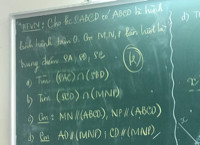 BTVN: Cho h/c SABCD có ABCD là hình
bình hành tâm O. Gọi M, N, P lần lượt là
trung điểm SA, SB, SC
a) Tìm (SAC) ∩ (SBD)
b) Tìm ∩ (MNP)
c) Cm: MN // (ABCD), NP // (ABCD)
d) Cm AD // (MNP); CD // (MNP)
d) T
x